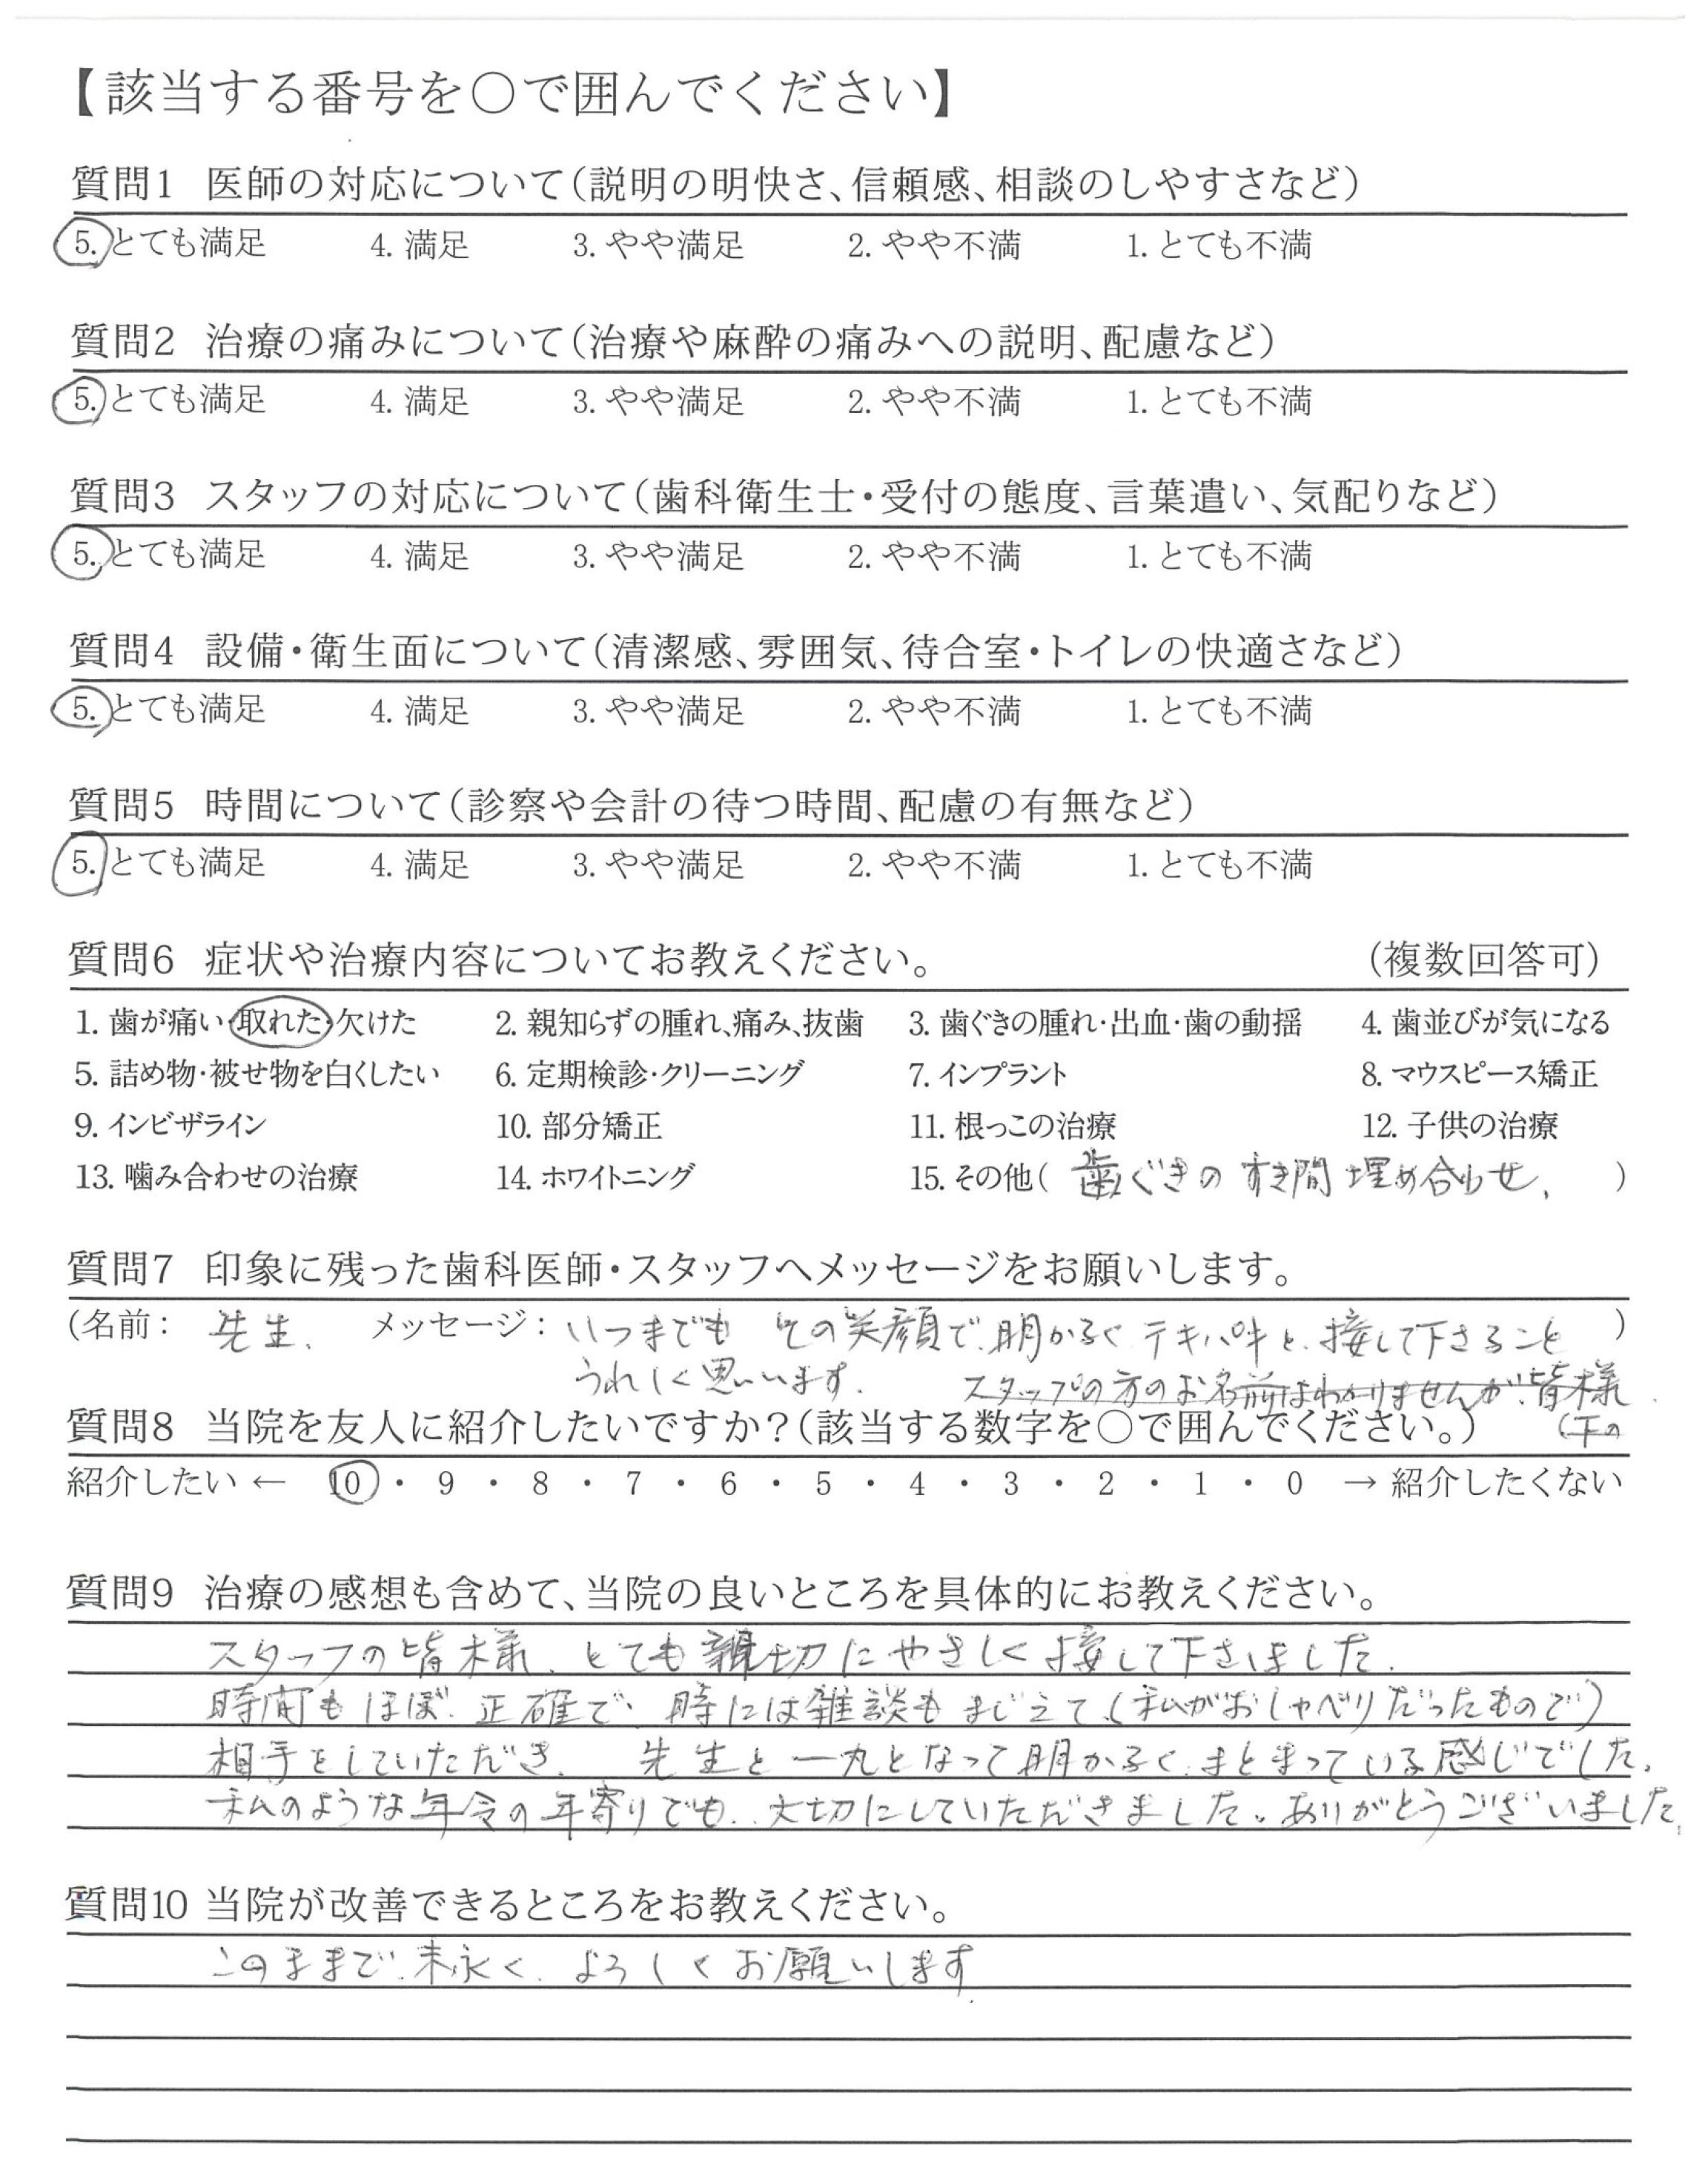 【該当する番号を〇で囲んでください】
質問1 医師の対応について(説明の明快さ、信頼感、相談のしやすさなど)
5. とても満足 4. 満足 3. やや満足 2. やや不満 1. とても不満
質問2 治療の痛みについて(治療や麻酔の痛みへの説明、配慮など)
5. とても満足 4. 満足 3. やや満足 2. やや不満 1. とても不満
質問3 スタッフの対応について(歯科衛生士・受付の態度、言葉遣い、気配りなど)
5. とても満足 4. 満足 3. やや満足 2. やや不満 1. とても不満
質問4 設備・衛生面について(清潔感、雰囲気、待合室・トイレの快適さなど)
5. とても満足 4. 満足 3. やや満足 2. やや不満 1. とても不満
質問5 時間について(診察や会計の待つ時間、配慮の有無など)
5. とても満足 4. 満足 3. やや満足 2. やや不満 1. とても不満
質問6 症状や治療内容についてお教えください。 (複数回答可)
1. 歯が痛い・取れた・欠けた 2. 親知らずの腫れ、痛み、抜歯 3. 歯ぐきの腫れ・出血・歯の動揺 4. 歯並びが気になる
5. 詰め物・被せ物を白くしたい 6. 定期検診・クリーニング 7. インプラント 8. マウスピース矯正
9. インビザライン 10. 部分矯正 11. 根っこの治療 12. 子供の治療
13. 噛み合わせの治療 14. ホワイトニング 15. その他( 歯ぐきの すき間 埋め合わせ、 )
質問7 印象に残った歯科医師・スタッフへメッセージをお願いします。
(名前: 先生、 メッセージ: いつまでも その笑顔で、明かるく テキパキと、接して下さること )
うれしく思います。 スタッフの方のお名前はわかりませんが、皆様
質問8 当院を友人に紹介したいですか?(該当する数字を〇で囲んでください。) (下の
紹介したい ← 10 ・ 9 ・ 8 ・ 7 ・ 6 ・ 5 ・ 4 ・ 3 ・ 2 ・ 1 ・ 0 → 紹介したくない
質問9 治療の感想も含めて、当院の良いところを具体的にお教えください。
スタッフの皆様、とても親切にやさしく接して下さいました。
時間もほぼ、正確で、時には雑談もまじえて、(私がおしゃべりだったもので)
相手をしていただき、 先生と一丸となって明かるく、まとまっている感じでした。
私のような年令の年寄りでも、大切にしていただきました。ありがとうございました。
質問10 当院が改善できるところをお教えください。
このままで、末永く、よろしくお願いします。